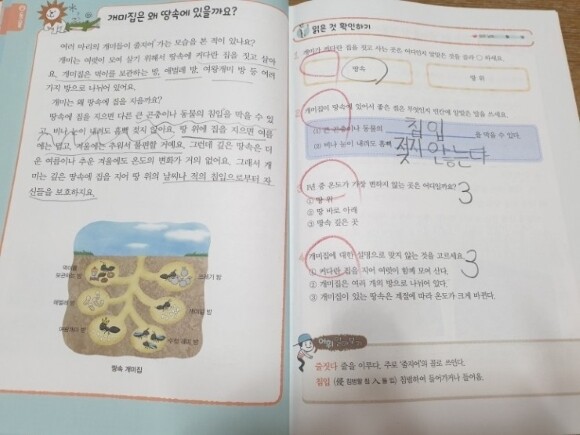 개미집은 왜 땅속에 있을까요?
여러 마리의 개미들이 줄지어 가는 모습을 본 적이 있나요?
개미는 여럿이 모여 살기 위해서 땅속에 커다란 집을 짓고 살아
요. 개미집은 먹이를 보관하는 방, 애벌레 방, 여왕개미 방 등 여러
가지 방으로 나뉘어 있어요.
개미는 왜 땅속에 집을 지을까요?
땅속에 집을 지으면 다른 큰 곤충이나 동물의 침입을 막을 수 있
고, 비나 눈이 내려도 흠뻑 젖지 않아요. 땅 위에 집을 지으면 여름
에는 덥고, 겨울에는 추워서 불편할 거예요. 그런데 깊은 땅속은 더
운 여름이나 추운 겨울에도 온도의 변화가 거의 없어요. 그래서 개
미는 깊은 땅속에 집을 지어 땅 위의 날씨나 적의 침입으로부터 자
신들을 보호하지요.
먹이를
보관하는 방
쓰레기 방
애벌레 방
여왕개미 방
수개미 방
땅속 개미집
읽은 것 확인하기
개미가 커다란 집을 짓고 사는 곳은 어디인지 알맞은 것을 골라 ○ 하세요.
땅속
땅 위
개미집이 땅속에 있어서 좋은 점은 무엇인지 빈칸에 알맞은 말을 쓰세요.
(1) 큰 곤충이나 동물의 침입 을 막을 수 있다.
(2) 비나 눈이 내려도 흠뻑 젖지 않는다
1년 중 온도가 가장 변하지 않는 곳은 어디일까요? 3
① 땅 위
② 땅 바로 아래
③ 땅속 깊은 곳
개미집에 대한 설명으로 맞지 않는 것을 고르세요. 3
① 커다란 집을 지어 여럿이 함께 모여 산다.
② 개미집은 여러 개의 방으로 나뉘어 있다.
③ 개미집이 있는 땅속은 계절에 따라 온도가 크게 바뀐다.
어휘
줄짓다 줄을 이루다. 주로 '줄지어'의 꼴로 쓰인다.
침입 (侵 침범할 침 入 들 입) 침범하여 들어가거나 들어옴.